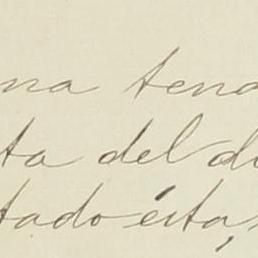 na tend
ta del di
tado ésta,